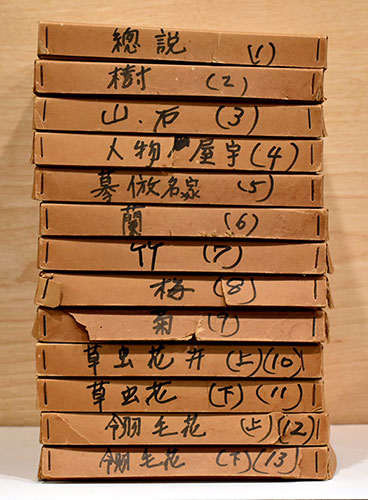 總説 (1)
樹 (2)
山.石 (3)
人物 屋宇 (4)
摹倣名家 (5)
蘭 (6)
竹 (7)
梅 (8)
菊 (9)
草虫花卉 (上)(10)
草虫花 (下)(11)
翎毛花 (上)(12)
翎毛花 (下)(13)